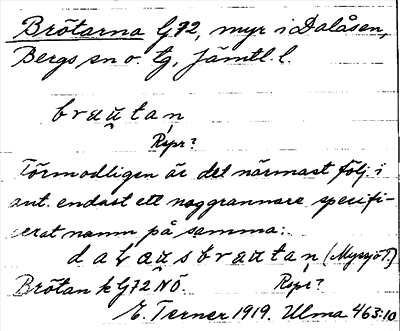 Brötarna G72, myr i Dalåsen,
Bergs sn o. tg, Jämtl. l.
brau̯tan
Rspr?
Förmodligen är det närmast följ. i
ant. endast ett noggrannare specifi-
cerat namn på samma:
dalau̯sbrau̯tan (Myssjö T.)
Brötan k G72 NÖ. Rspr?
E. Terner 1919. Ulma 463:10